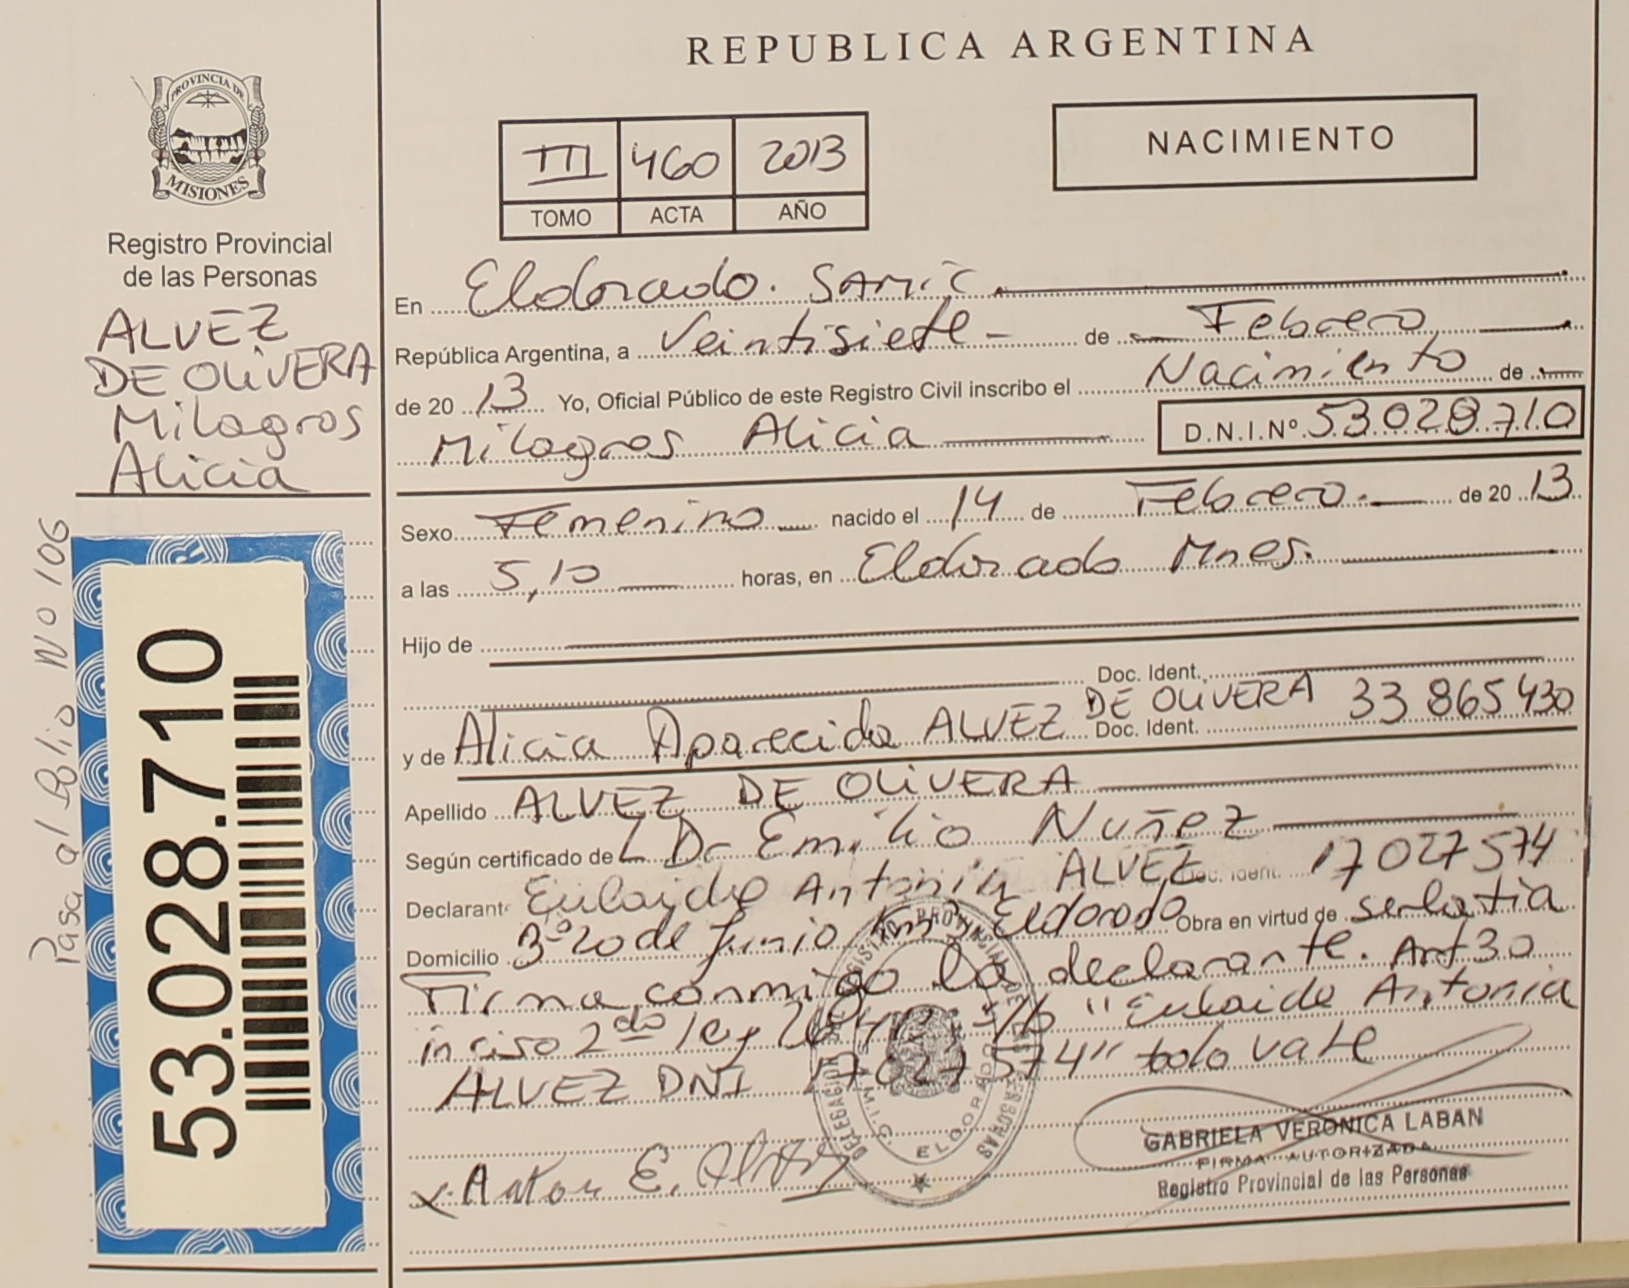 REPUBLICA ARGENTINA
PROVINCIA DE
MISIONES
Registro Provincial
de las Personas
ALVEZ
DE OLIVERA
Milagros
Alicia
Pasa al Folio Nº 106
53.028.710
III 460 2013
TOMO ACTA AÑO
NACIMIENTO
En Eldorado. SAMIC
República Argentina, a Veintisiete - de Febrero
de 20 13 Yo, Oficial Público de este Registro Civil inscribo el Nacimiento de
Milagros Alicia D.N.I.Nº 53.028.710
Sexo Femenino nacido el 14 de Febrero. de 20 13
a las 5,10 horas, en Eldorado Mnes.
Hijo de
Doc. Ident.
y de Alicia Aparecida ALVEZ DE OLIVERA Doc. Ident. 33 865 430
Apellido ALVEZ DE OLIVERA
Según certificado de Dr Emilio Nuñez
Declarante Eulaide Antonia ALVEZ Doc. Ident. 17 027 574
Domicilio 3-º20 de Junio Eldorado Obra en virtud de
Firma conmigo la declarante. Art 30
inciso 2do ley "Eulaide Antonia
ALVEZ DNI 17027574" todo vale
E. Alvez
DELEGACION ELDORADO
GABRIELA VERONICA LABAN
FIRMA AUTORIZADA
Registro Provincial de las Personas